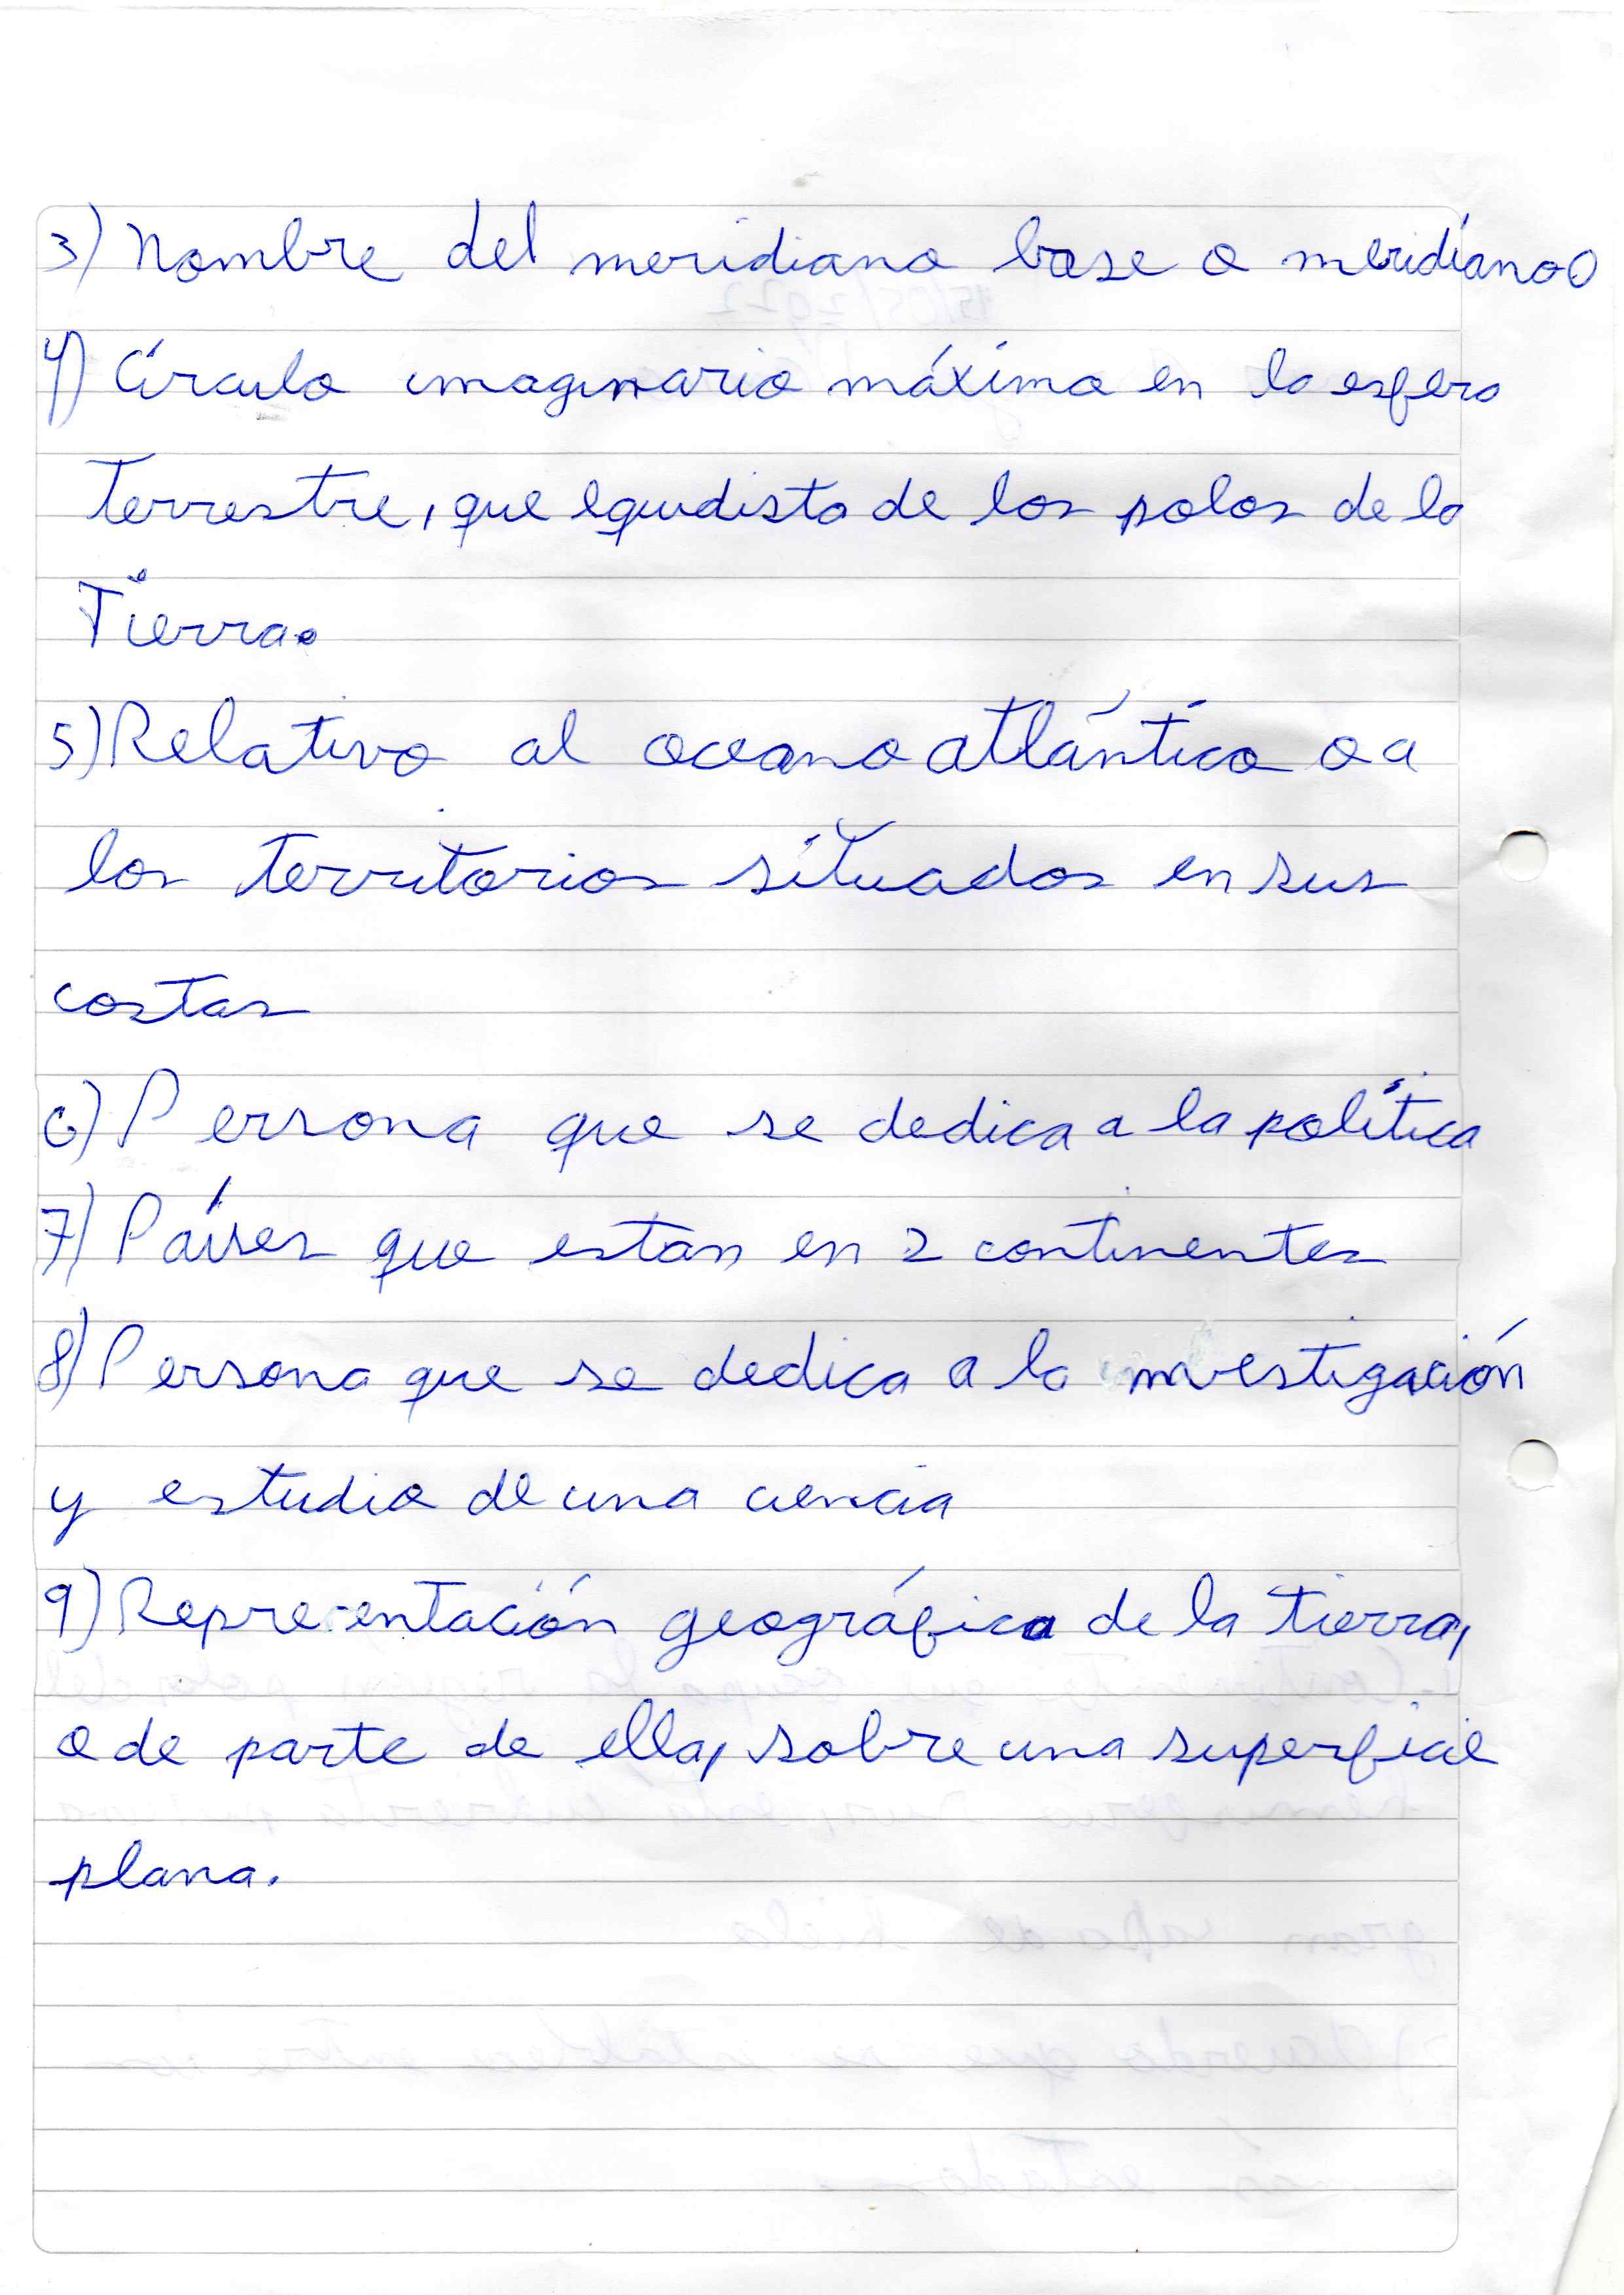 3) Nombre del meridiano base o meridiano 0
4) Círculo imaginario máximo en la esfera
terrestre, que equidista de los polos de la
Tierra.
5) Relativo al oceano atlántico o a
los territorios situados en sus
costas
6) Persona que se dedica a la política
7) Países que estan en 2 continentes
8) Persona que se dedica a la investigación
y estudio de una ciencia
9) Representación geográfica de la tierra,
o de parte de ella, sobre una superficie
plana.